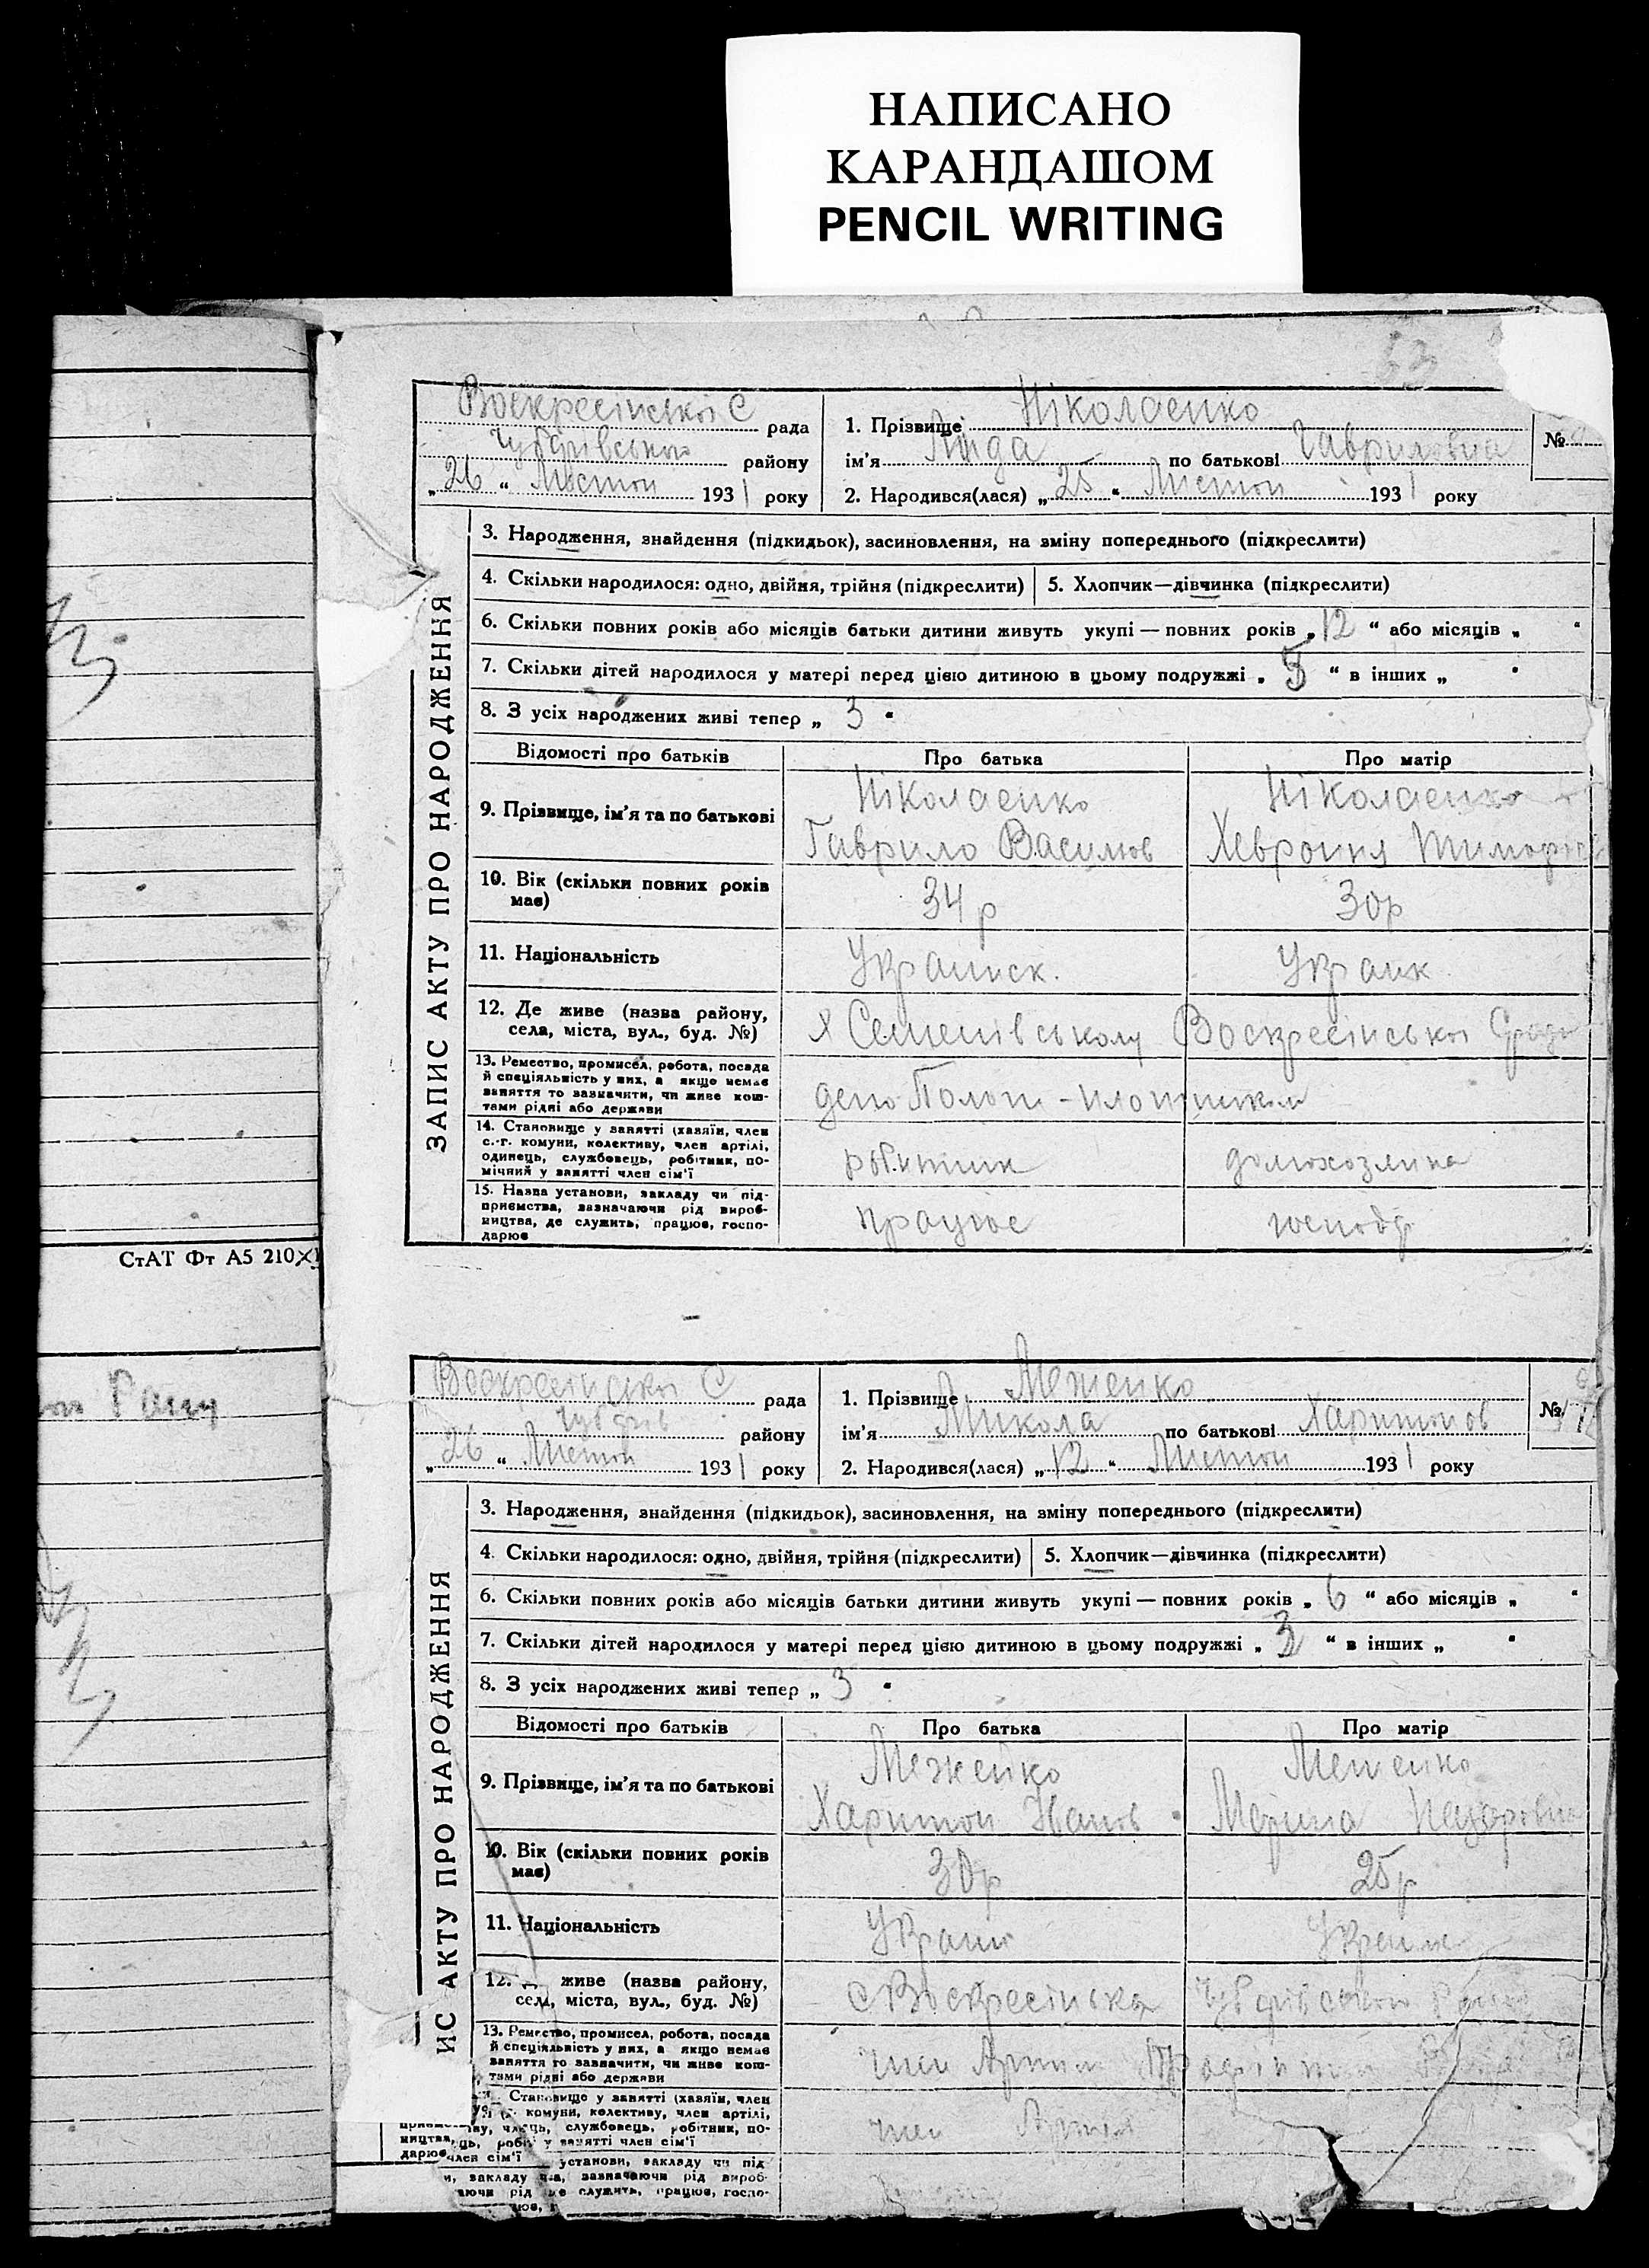 НАПИСАНО
КАРАНДАШОМ
PENCIL WRITING
63
Воскресінської С рада
Чубарівського району
„ 26 “ Листоп 1931 року
1. Прізвище Ніколаенко
ім’я Лида по батькові Гавриловна
2. Народився(лася) „ 25 “ Листоп 1931 року
№
ЗАПИС АКТУ ПРО НАРОДЖЕННЯ
3. Народження, знайдення (підкидьок), засиновлення, на зміну попереднього (підкреслити)
4. Скільки народилося: одно, двійня, трійня (підкреслити) 5. Хлопчик—дівчинка (підкреслити)
6. Скільки повних років або місяців батьки дитини живуть укупі — повних років „ 12 “ або місяців „ “
7. Скільки дітей народилося у матері перед цією дитиною в цьому подружжі „ 5 “ в інших „ “
8. З усіх народжених живі тепер „ 3 “
Відомості про батьків Про батька Про матір
9. Прізвище, ім’я та по батькові
Ніколаенко Ніколаенко
Гаврило Васильов Хеврония
10. Вік (скільки повних років має) 34 р 30р
11. Національність Украинск. Украик
12. Де живе (назва району, села, міста, вул., буд. №)
х Семенівському Воскресінської
13. Ремество, промисел, робота, посада
й спеціяльність у них, а якщо немає
заняття то зазначити, чи живе кош-
тами рідні або держави
депо Пологи -
14. Становище у занятті (хазяїн, член
с.-г. комуни, колективу, член артілі,
одинець, службовець, робітник, по-
мічний у занятті член сім’ї
робитник домохозяина
15. Назва установи, закладу чи під-
приємства, зазначаючи рід вироб-
ництва, де служить, працює, госпо-
дарює
працюе господ
СтАТ Фт А5 210×1
Воскресінської С рада
Чубарів району
„ 26 “ Листоп 1931 року
1. Прізвище Меженко
ім’я Микола по батькові Харитонов
2. Народився(лася) „ 12 “ Листоп 1931 року
№
ИС АКТУ ПРО НАРОДЖЕННЯ
3. Народження, знайдення (підкидьок), засиновлення, на зміну попереднього (підкреслити)
4. Скільки народилося: одно, двійня, трійня (підкреслити) 5. Хлопчик—дівчинка (підкреслити)
6. Скільки повних років або місяців батьки дитини живуть укупі — повних років „ 6 “ або місяців „ “
7. Скільки дітей народилося у матері перед цією дитиною в цьому подружжі „ 3 “ в інших „ “
8. З усіх народжених живі тепер „ 3 “
Відомості про батьків Про батька Про матір
9. Прізвище, ім’я та по батькові
Меженко Меженко
Харитон Іванов Марина Назаровна
10. Вік (скільки повних років має) 30р 25р
11. Національність Украин
12. живе (назва району, села, міста, вул., буд. №)
с Воскресінька Чубарівского
13. Ремество, промисел, робота, посада
й спеціяльність у них, а якщо немає
заняття то зазначити, чи живе кош-
тами рідні або держави
член
Становище у занятті (хазяїн, член
комуни, колективу, член артілі,
службовець, робітник, по-
у занятті член сім’ї
член
установи, закладу чи під-
зазначаючи рід вироб-
служить, працює, госпо-